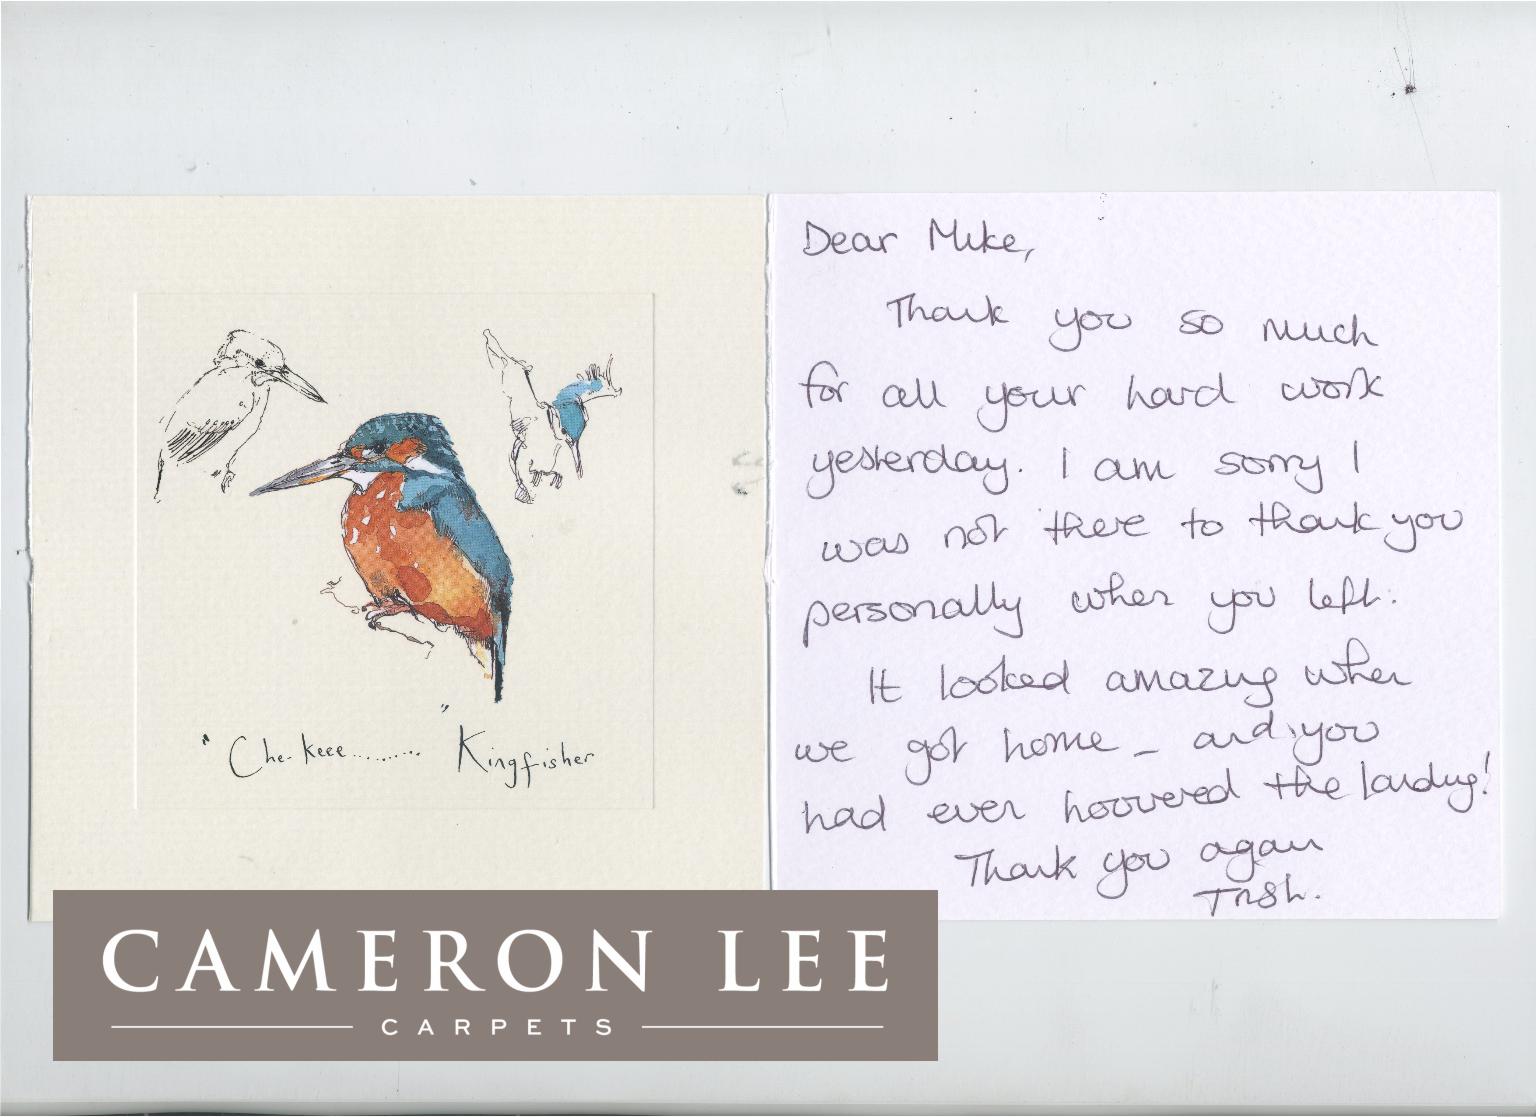 "Che-keee.........." Kingfisher
Dear Mike,
Thank you so much
for all your hard work
yesterday. I am sorry I
was not there to thank you
personally when you left.
It looked amazing when
we got home - and you
had even hoovered the landing!
Thank you again
Trish.
CAMERON LEE
CARPETS